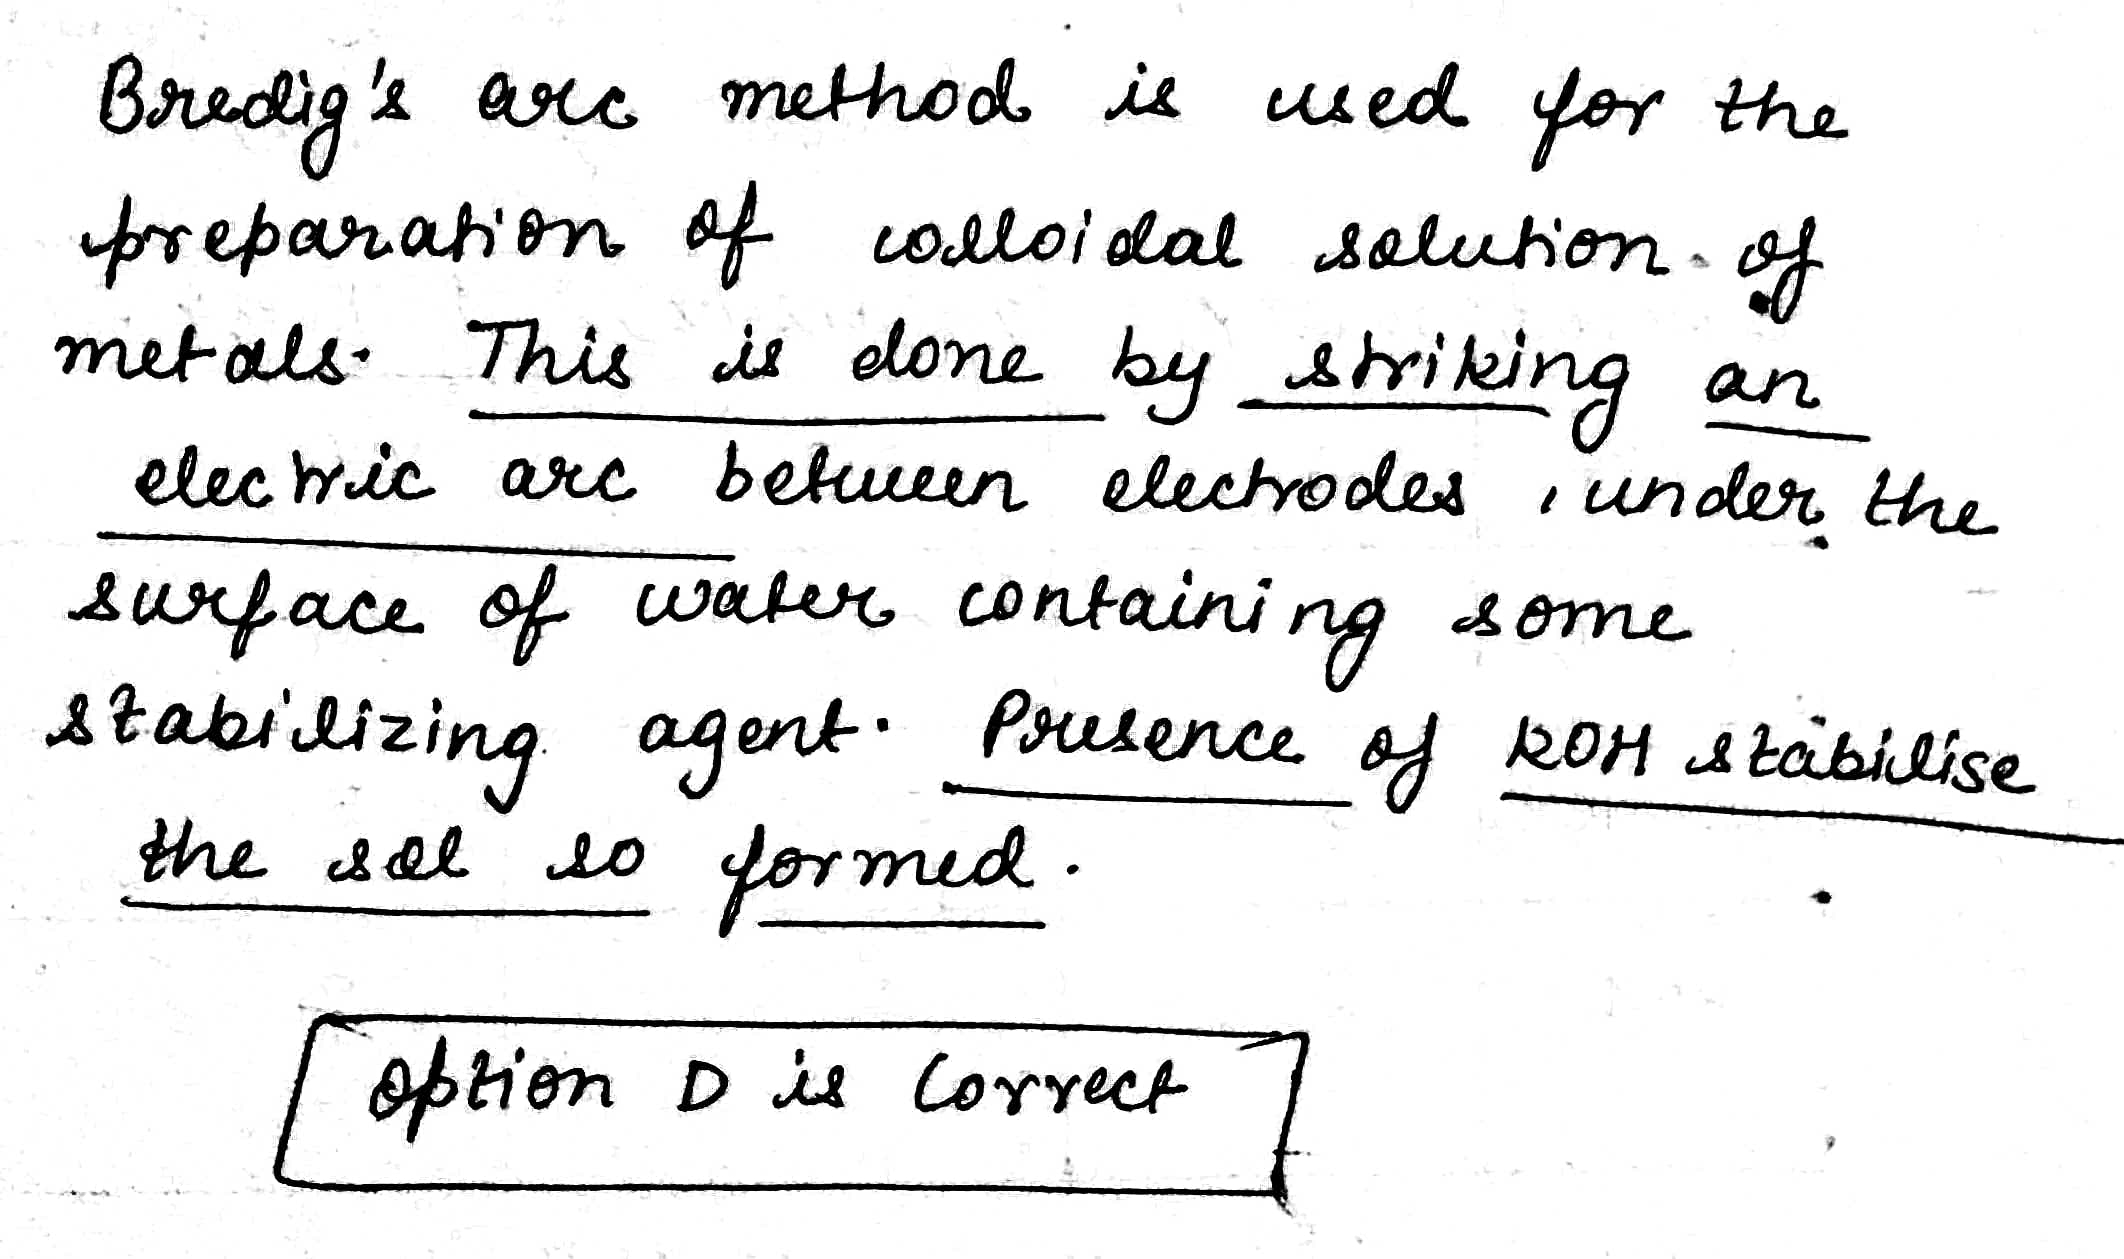 Bredig's arc method is used for the
preparation of colloidal solution of
metals. This is done by striking an
electric arc between electrodes, under the
surface of water containing some
stabilizing agent. Presence of KOH stabilise
the sol so formed.
option D is Correct